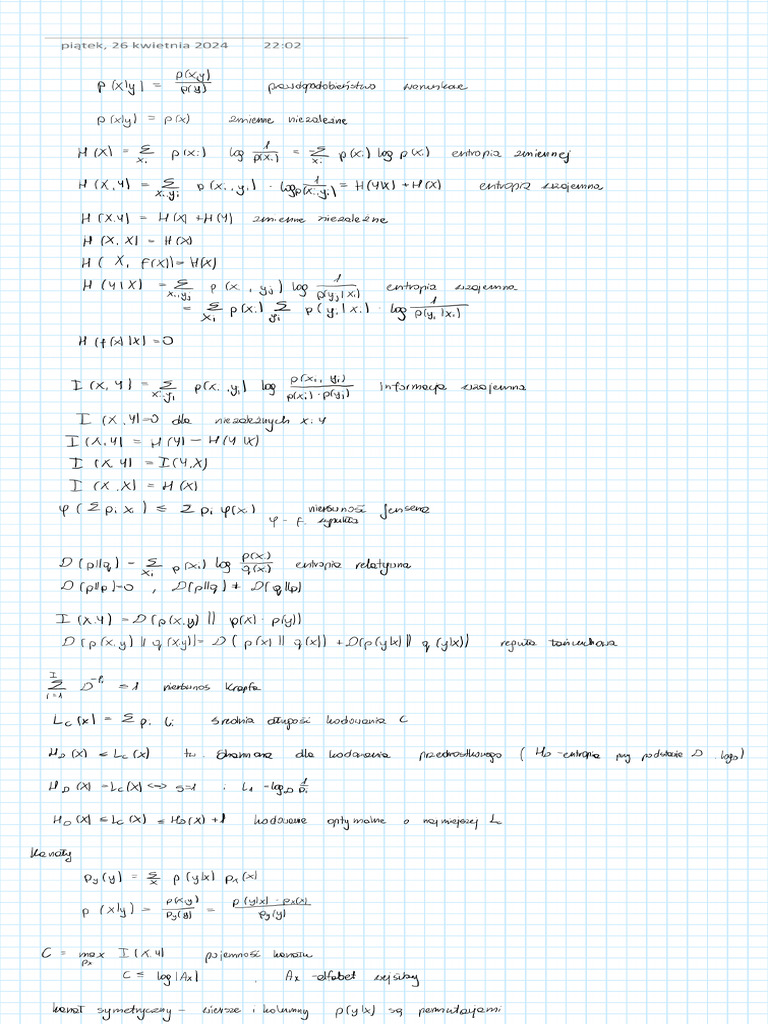 piątek, 26 kwietnia 2024 22:02
p(x|y) = p(x,y) / p(y) prawdopodobieństwo warunkowe
p(x|y) = p(x) zmienne niezależne
H(X) = Σ_{xᵢ} p(xᵢ) log 1/p(xᵢ) = -Σ_{xᵢ} p(xᵢ) log p(xᵢ) entropia zmiennej
H(X,Y) = Σ_{xᵢ,yⱼ} p(xᵢ,yⱼ) · log 1/p(xᵢ,yⱼ) = H(Y|X) + H(X) entropia wzajemna
H(X,Y) = H(X) + H(Y) zmienne niezależne
H(X,X) = H(X)
H(X, f(X)) = H(X)
H(Y|X) = Σ_{xᵢ,yⱼ} p(xᵢ,yⱼ) log 1/p(yⱼ|xᵢ) entropia wzajemna
= Σ_{xᵢ} p(xᵢ) Σ_{yⱼ} p(yⱼ|xᵢ) · log 1/p(yⱼ|xᵢ)
H(f(x)|X) = 0
I(X,Y) = Σ_{xᵢ,yⱼ} p(xᵢ,yⱼ) log p(xᵢ,yⱼ) / p(xᵢ)·p(yⱼ) Informacja wzajemna
I(X,Y) = 0 dla niezależnych X i Y
I(X,Y) = H(Y) - H(Y|X)
I(X,Y) = I(Y,X)
I(X,X) = H(X)
φ(Σ pᵢ xᵢ) ≤ Σ pᵢ φ(xᵢ) nierówność Jensena
φ - f. wypukła
D(p||q) = Σ_{xᵢ} p(xᵢ) log p(xᵢ)/q(xᵢ) entropia relatywna
D(p||p) = 0 , D(p||q) ≠ D(q||p)
I(X,Y) = D(p(x,y) || p(x)·p(y))
D(p(x,y) || q(x,y)) = D(p(x) || q(x)) + D(p(y|x) || q(y|x)) reguła łańcuchowa
Σ_{i=1}^{I} D^{-lᵢ} ≤ 1 nierównos Krafta
L_C(x) = Σ pᵢ lᵢ średnia długość kodowania C
H_D(x) ≤ L_C(x) tw. Shannona dla kodowania przedrostkowego (H_D - entropia przy podstawie D log_D)
H_D(X) = L_C(X) <=> S=1 i lᵢ = log_D 1/pᵢ
H_D(X) ≤ L_C(X) ≤ H_D(X) + 1 kodowanie optymalne o najmniejszej L_C
Kanały
p_y(y) = Σ_x p(y|x) p_x(x)
p(x|y) = p(x,y)/p_y(y) = p(y|x)·p_x(x) / p_y(y)
C = max_{px} I(X,Y) pojemność kanału
C ≤ log|A_x| , A_x - alfabet wejściowy
kanał symetryczny - wiersze i kolumny p(y|x) są permutacjami